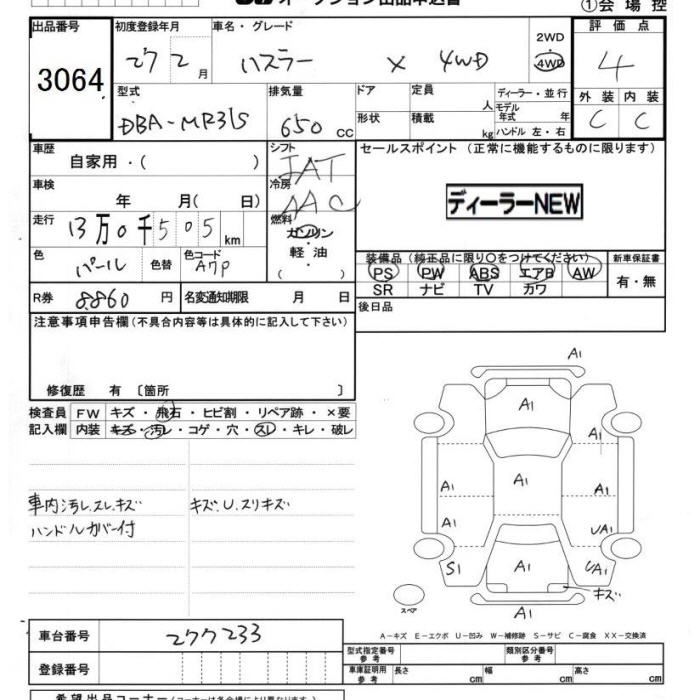 ①会場控
出品番号
3064
初度登録年月
27 2 月
車名・グレード
ハスラー X 4WD
2WD
4WD
評価点
4
外装 内装
C C
型式
DBA-MR31S
排気量
650 cc
ドア
定員
人
形状
積載
kg
ディーラー・並行
モデル
年式 年
ハンドル 左・右
車歴
自家用・( )
シフト
IAT
セールスポイント (正常に機能するものに限ります)
ディーラーNEW
車検
年 月( 日)
冷房
AAC
走行
13万0千505km
燃料
ガソリン
・
軽油
( )
色
パール
色替
色コード
A7P
装備品(純正品に限り○をつけてください)
PS PW ABS エアB AW
SR ナビ TV カワ
新車保証書
有・無
R券
8860 円
名変通知期限 月 日
後日品
注意事項申告欄(不具合内容等は具体的に記入して下さい)
修復歴 有 〔箇所 〕
検査員
記入欄
FW キズ・飛石・ヒビ割・リペア跡・×要
内装 キズ・汚レ・コゲ・穴・スレ・キレ・破レ
車内汚レ.スレ.キズ
ハンドルカバー付
キズ.U.スリキズ
A1
A1
A1
A1
A1
A1
A1
A1
UA1
S1
A1
UA1
キズ
スペア
A1
A-キズ E-エクボ U-凹み W-補修跡 S-サビ C-腐食 XX-交換済
車台番号
277233
登録番号
型式指定番号
参考
類別区分番号
参考
車庫証明用
参考
長さ cm
幅 cm
高さ cm